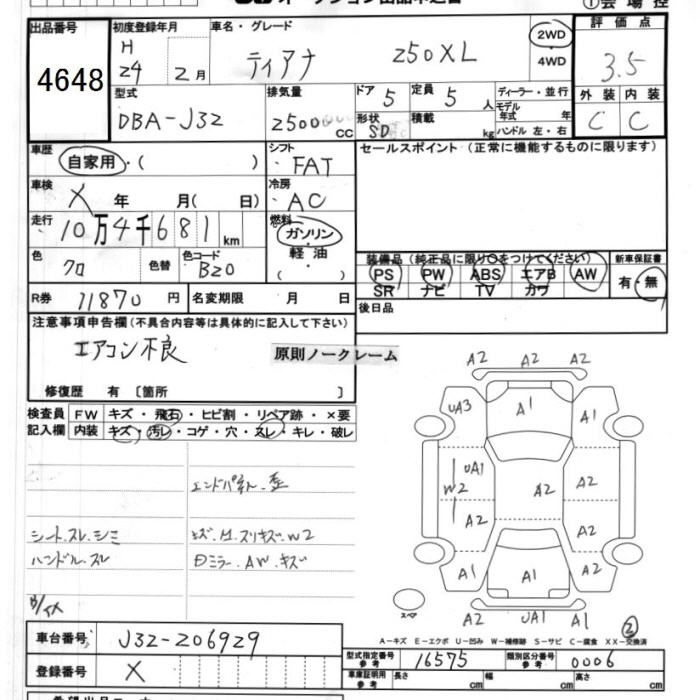 ①会場控
出品番号
4648
初度登録年月
H
24 2月
車名・グレード
ティアナ 250XL
2WD
・
4WD
評価点
3.5
外装 内装
C C
型式
DBA-J32
排気量
2500 CC
ドア 5
定員 5 人
形状 SD
積載 kg
ディーラー・並行
モデル
年式 年
ハンドル 左・右
車歴
自家用・( )
シフト
FAT
セールスポイント (正常に機能するものに限ります)
車検
X 年 月( 日)
冷房
AC
走行
10万4千681 km
燃料
ガソリン
・
軽油
・( )
色
クロ
色替
色コード
B20
装備品 (純正品に限り○をつけてください)
PS PW ABS エアB AW
SR ナビ TV カワ
新車保証書
有・無
R券 11870 円
名変期限 月 日
後日品
注意事項申告欄 (不具合内容等は具体的に記入して下さい)
エアコン不良
原則ノークレーム
修復歴 有 〔箇所 〕
検査員
記入欄
FW キズ・飛石・ヒビ割・リペア跡・×要
内装 キズ・汚レ・コゲ・穴・スレ・キレ・破レ
シート.スレ.シミ
ハンドル.スレ
キズ.凹.スリキズ.W2
ミラー.AW.キズ
A2 A2 A2
UA3 A1 A1
UA1
W2
A2 A2
A2 A2
A1 A1 A2
スペア
A2 UA1 A1
②
A-キズ E-エクボ U-凹み W-補修跡 S-サビ C-腐食 XX-交換済
車台番号 J32-206929
登録番号 X
型式指定番号
参考
16575
類別区分番号
参考
0006
車庫証明用
参考
長さ cm
幅 cm
高さ cm